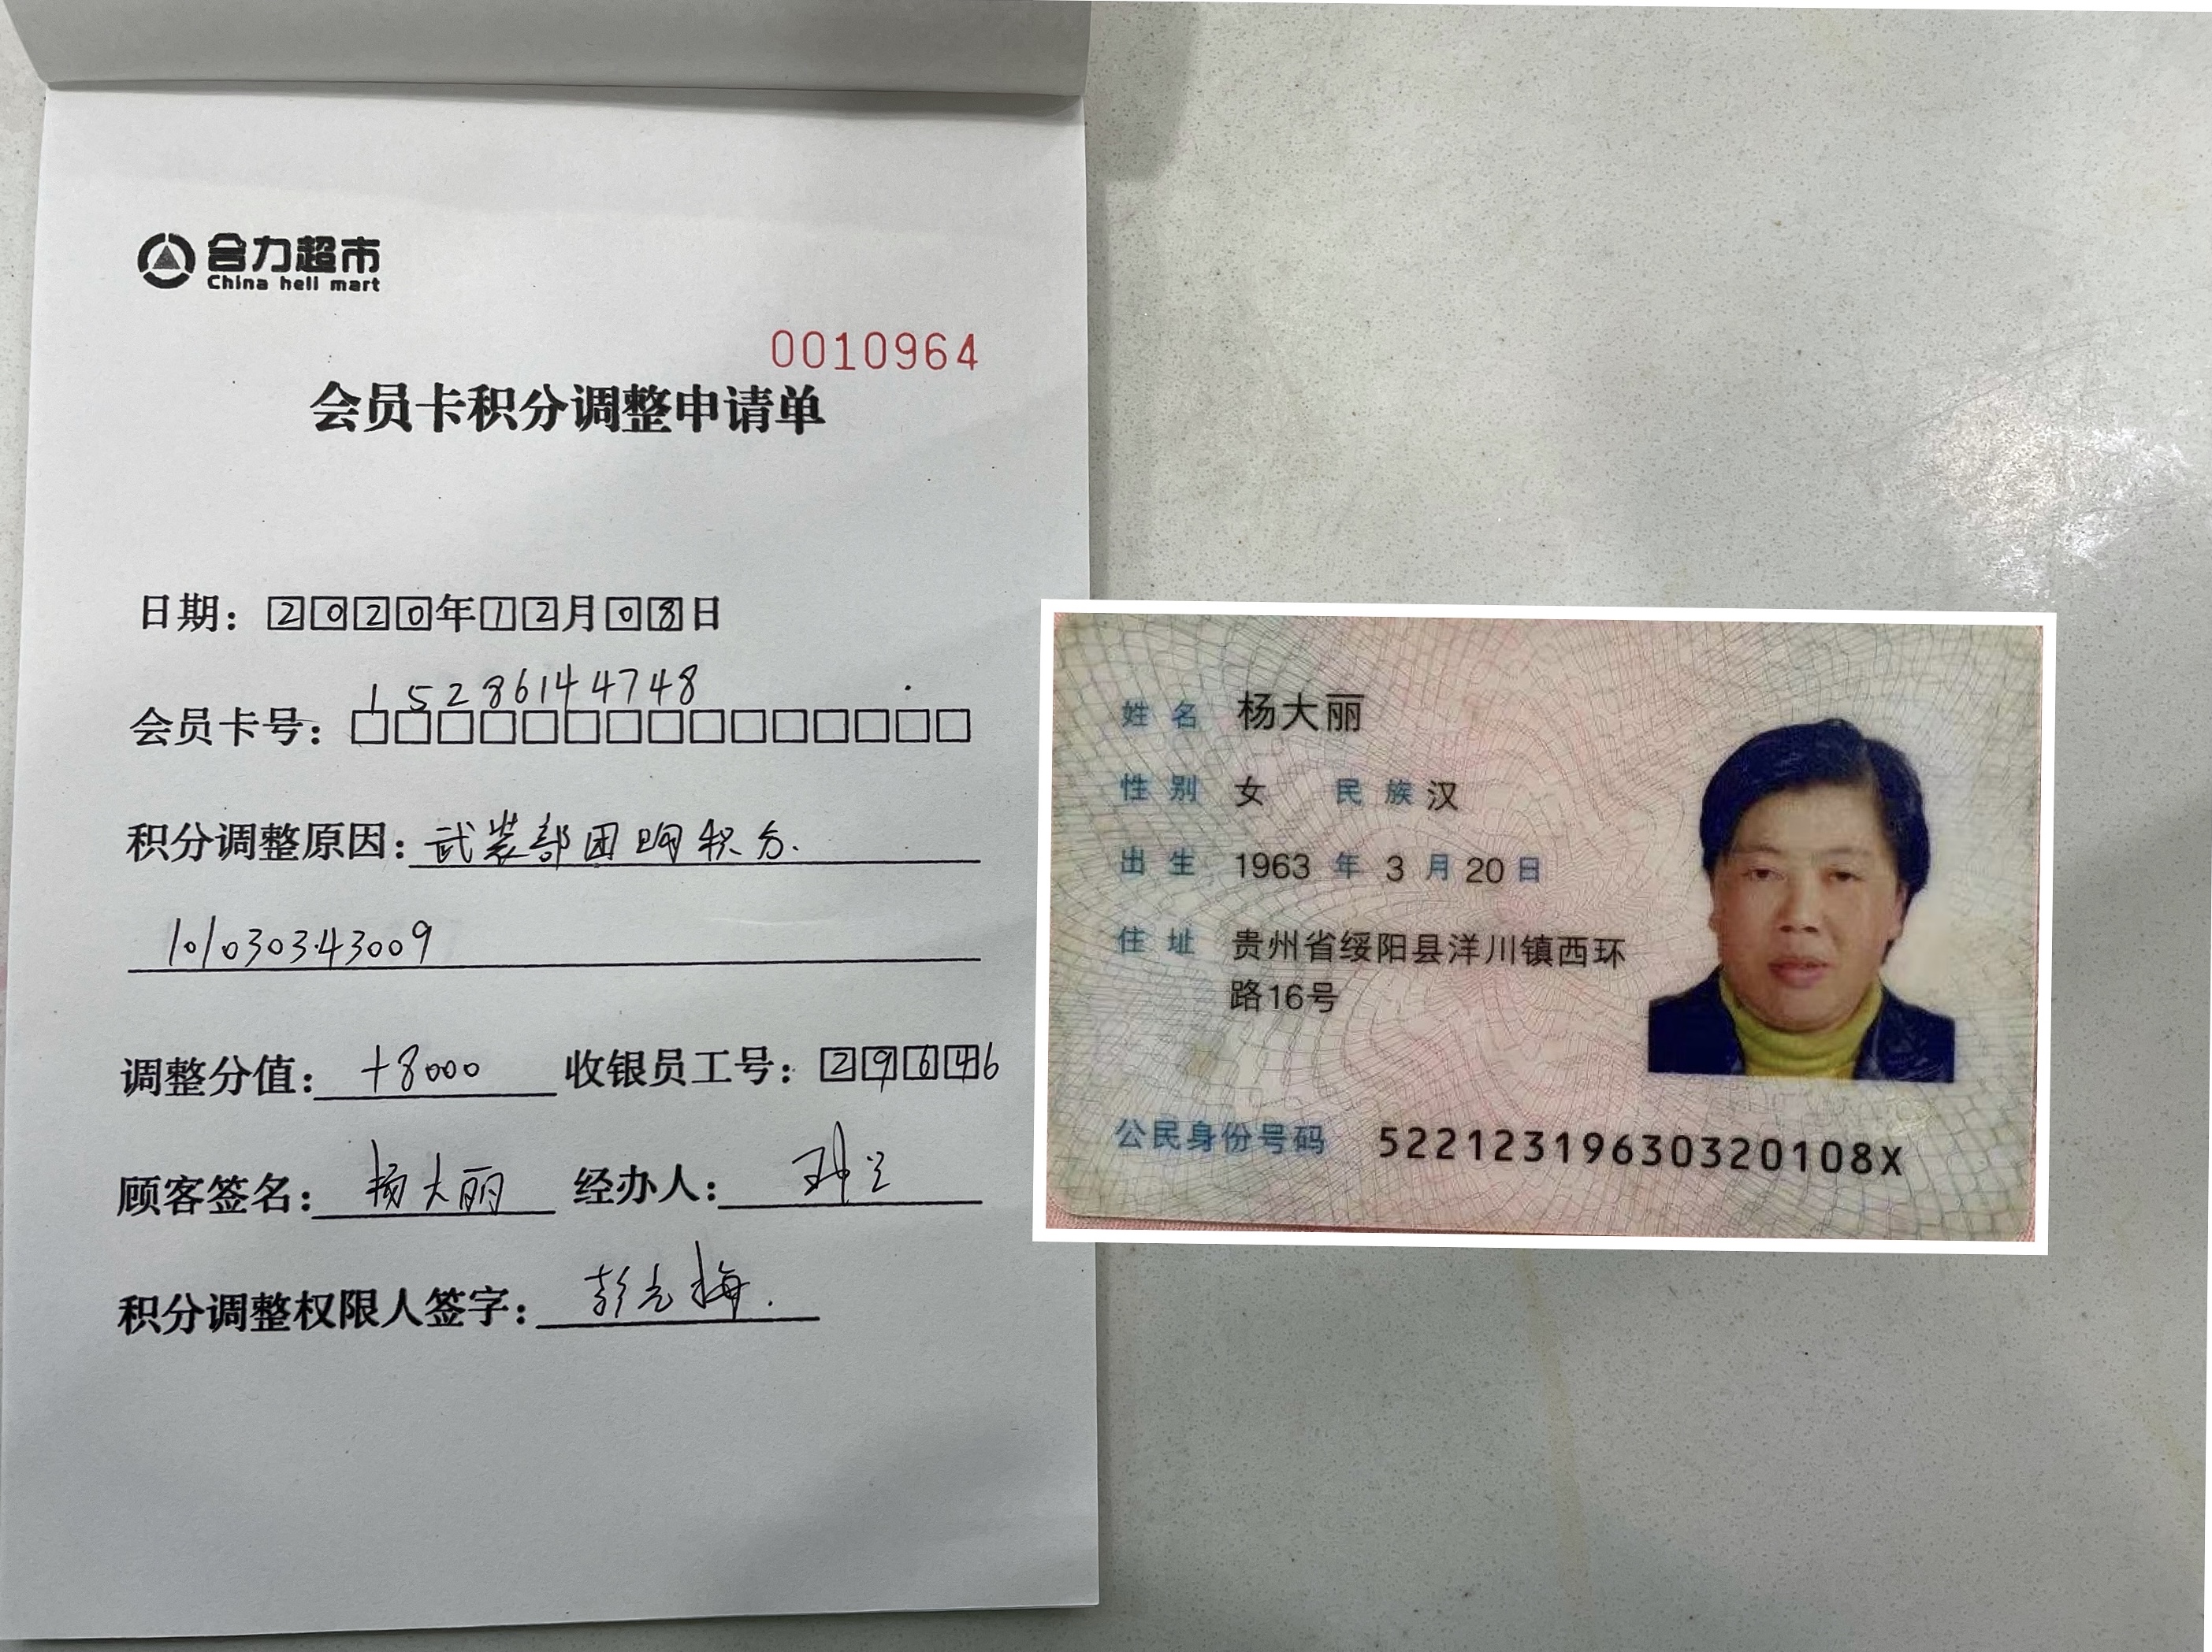 合力超市
China heli mart
0010964
会员卡积分调整申请单
日期：2020年12月08日
会员卡号：15286144748
积分调整原因：武装部团购积分.
101030343009
调整分值：+8000 收银员工号：29646
顾客签名：杨大丽 经办人：
积分调整权限人签字：彭光梅.
姓名 杨大丽
性别 女 民族 汉
出生 1963年3月20日
住址 贵州省绥阳县洋川镇西环
路16号
公民身份号码 52212319630320108X